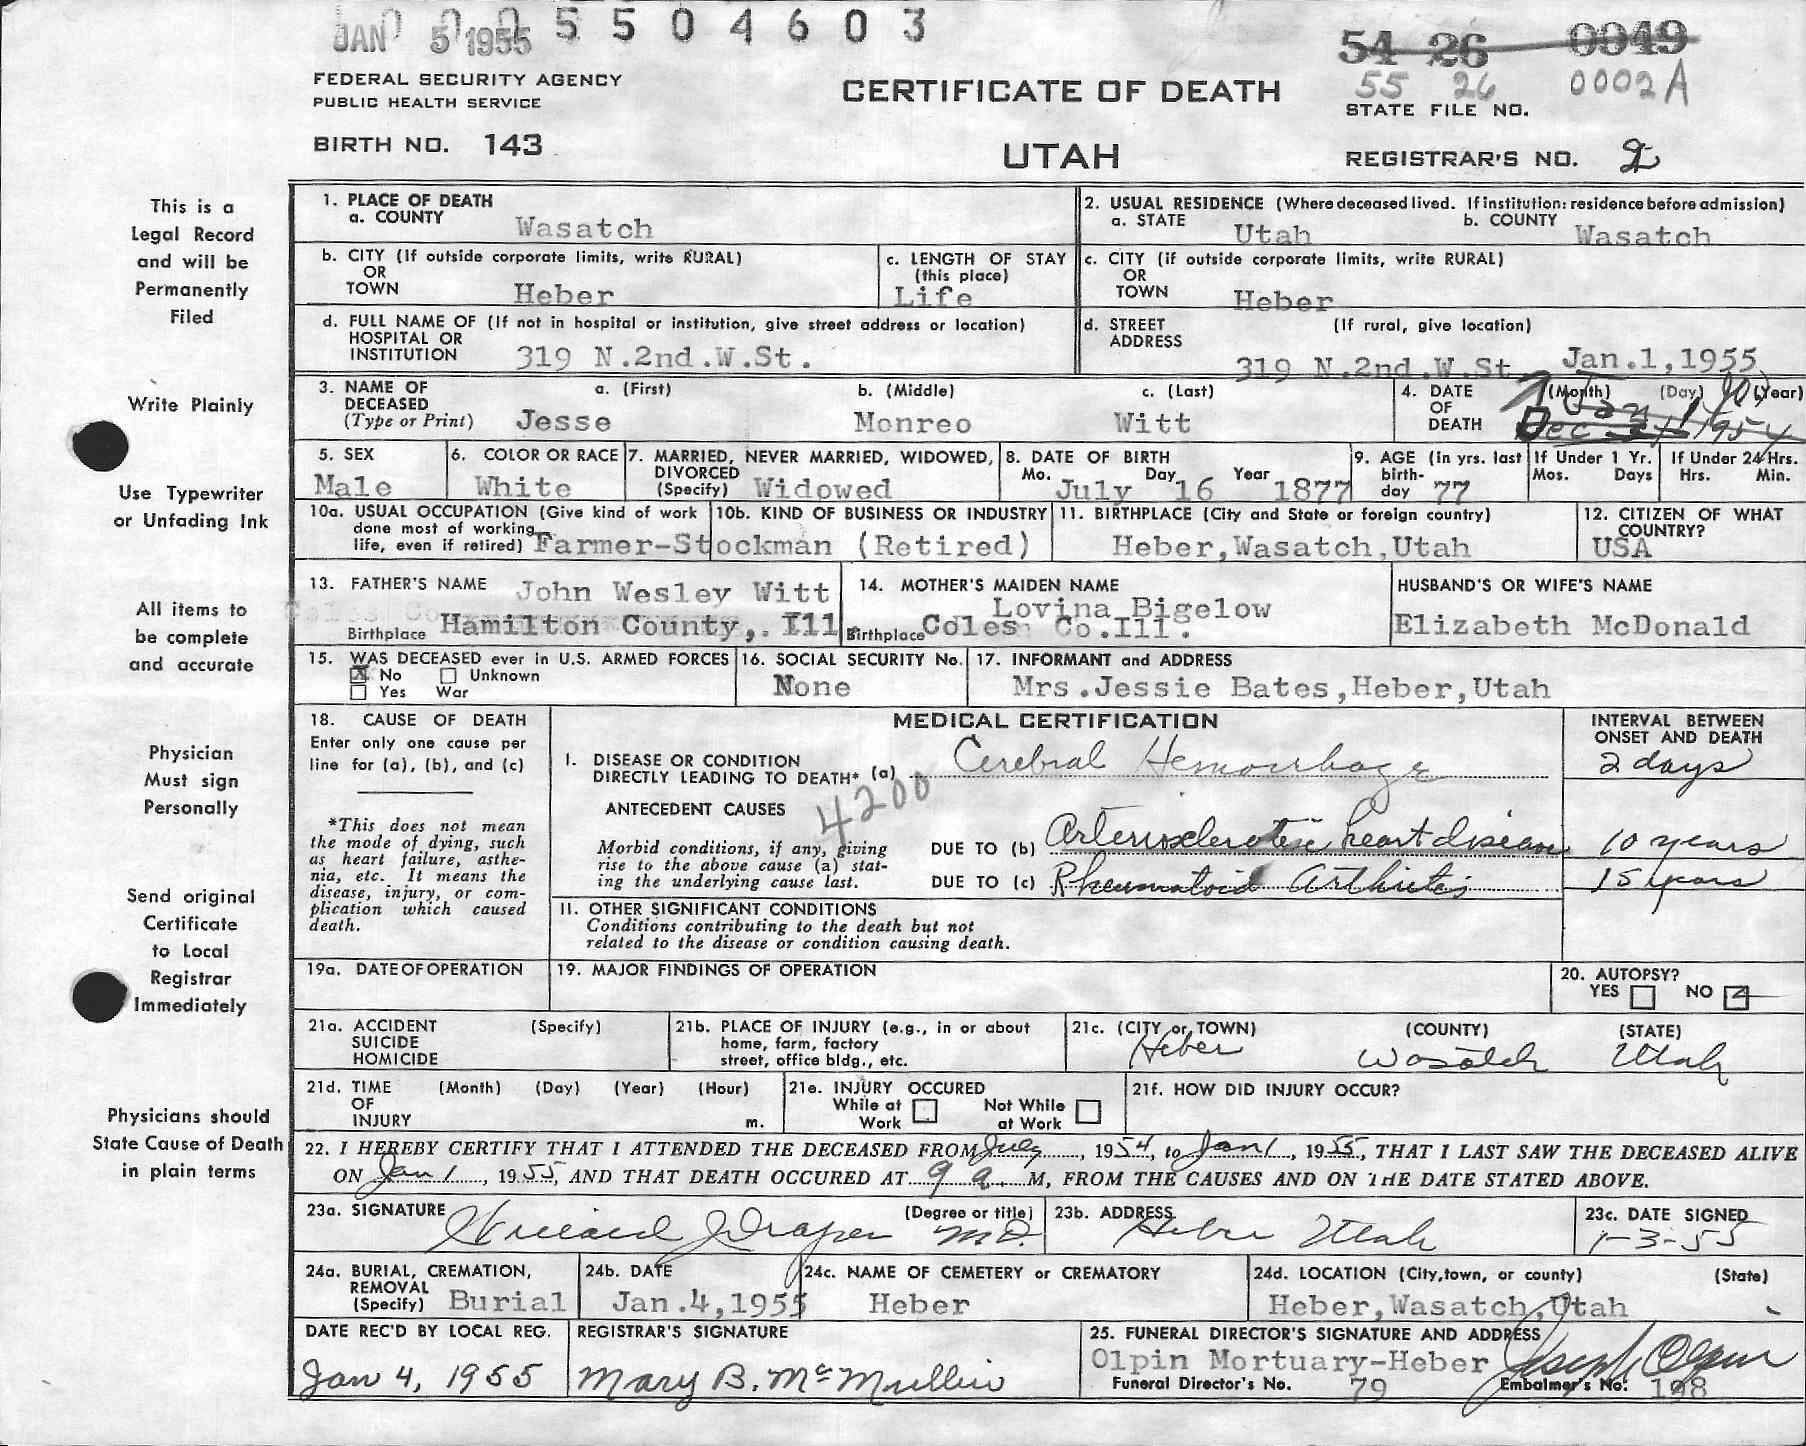 JAN 5 1955 5 5 0 4 6 0 3
54 26 0049
FEDERAL SECURITY AGENCY
PUBLIC HEALTH SERVICE
CERTIFICATE OF DEATH
55 26 0002A
STATE FILE NO.
BIRTH NO. 143
UTAH
REGISTRAR'S NO. 2
This is a
Legal Record
and will be
Permanently
Filed
Write Plainly
Use Typewriter
or Unfading Ink
All items to
be complete
and accurate
Physician
Must sign
Personally
Send original
Certificate
to Local
Registrar
Immediately
Physicians should
State Cause of Death
in plain terms
1. PLACE OF DEATH
a. COUNTY Wasatch
2. USUAL RESIDENCE (Where deceased lived. If institution: residence before admission)
a. STATE Utah b. COUNTY Wasatch
b. CITY (If outside corporate limits, write RURAL)
OR
TOWN Heber
c. LENGTH OF STAY
(this place)
Life
c. CITY (if outside corporate limits, write RURAL)
OR
TOWN Heber
d. FULL NAME OF (If not in hospital or institution, give street address or location)
HOSPITAL OR
INSTITUTION 319 N.2nd.W.St.
d. STREET (If rural, give location)
ADDRESS
319 N.2nd.W.St. Jan.1,1955
3. NAME OF a. (First) b. (Middle) c. (Last)
DECEASED
(Type or Print) Jesse Monreo Witt
4. DATE (Month) (Day) (Year)
OF Jan 1
DEATH Dec 31 1954
5. SEX
Male
6. COLOR OR RACE
White
7. MARRIED, NEVER MARRIED, WIDOWED,
DIVORCED
(Specify) Widowed
8. DATE OF BIRTH
Mo. Day Year
July 16 1877
9. AGE (In yrs. last
birth-
day 77
If Under 1 Yr.
Mos. Days
If Under 24 Hrs.
Hrs. Min.
10a. USUAL OCCUPATION (Give kind of work
done most of working
life, even if retired) Farmer-Stockman (Retired)
10b. KIND OF BUSINESS OR INDUSTRY
11. BIRTHPLACE (City and State or foreign country)
Heber,Wasatch,Utah
12. CITIZEN OF WHAT
COUNTRY?
USA
13. FATHER'S NAME John Wesley Witt
Birthplace Hamilton County,. Ill.
14. MOTHER'S MAIDEN NAME
Lovina Bigelow
Birthplace Coles Co.Ill.
HUSBAND'S OR WIFE'S NAME
Elizabeth McDonald
15. WAS DECEASED ever in U.S. ARMED FORCES
X No Unknown
Yes War
16. SOCIAL SECURITY No.
None
17. INFORMANT and ADDRESS
Mrs.Jessie Bates,Heber,Utah
18. CAUSE OF DEATH
Enter only one cause per
line for (a), (b), and (c)
*This does not mean
the mode of dying, such
as heart failure, asthe-
nia, etc. It means the
disease, injury, or com-
plication which caused
death.
MEDICAL CERTIFICATION
INTERVAL BETWEEN
ONSET AND DEATH
I. DISEASE OR CONDITION
DIRECTLY LEADING TO DEATH* (a) Cerebral Hemorrhage 2 days
4200
ANTECEDENT CAUSES
Morbid conditions, if any, giving
rise to the above cause (a) stat-
ing the underlying cause last.
DUE TO (b) Arteriosclerotic heart disease 10 years
DUE TO (c) Rheumatoid Arthritis 15 years
II. OTHER SIGNIFICANT CONDITIONS
Conditions contributing to the death but not
related to the disease or condition causing death.
19a. DATE OF OPERATION
19. MAJOR FINDINGS OF OPERATION
20. AUTOPSY?
YES NO
21a. ACCIDENT (Specify)
SUICIDE
HOMICIDE
21b. PLACE OF INJURY (e.g., in or about
home, farm, factory
street, office bldg., etc.
21c. (CITY or TOWN) (COUNTY) (STATE)
Heber Wasatch Utah
21d. TIME (Month) (Day) (Year) (Hour)
OF
INJURY m.
21e. INJURY OCCURED
While at Not While
Work at Work
21f. HOW DID INJURY OCCUR?
22. I HEREBY CERTIFY THAT I ATTENDED THE DECEASED FROM July, 1954, to Jan 1, 1955, THAT I LAST SAW THE DECEASED ALIVE
ON Jan 1, 1955, AND THAT DEATH OCCURED AT 9 a. M, FROM THE CAUSES AND ON THE DATE STATED ABOVE.
23a. SIGNATURE (Degree or title)
Draper M.D.
23b. ADDRESS
Heber Utah
23c. DATE SIGNED
1-3-55
24a. BURIAL, CREMATION,
REMOVAL
(Specify) Burial
24b. DATE
Jan.4,1955
24c. NAME OF CEMETERY or CREMATORY
Heber
24d. LOCATION (City,town, or county) (State)
Heber,Wasatch,Utah
DATE REC'D BY LOCAL REG.
Jan 4, 1955
REGISTRAR'S SIGNATURE
Mary B. McMullin
25. FUNERAL DIRECTOR'S SIGNATURE AND ADDRESS
Olpin Mortuary-Heber Joseph Olpin
Funeral Director's No. 79 Embalmer's No: 198